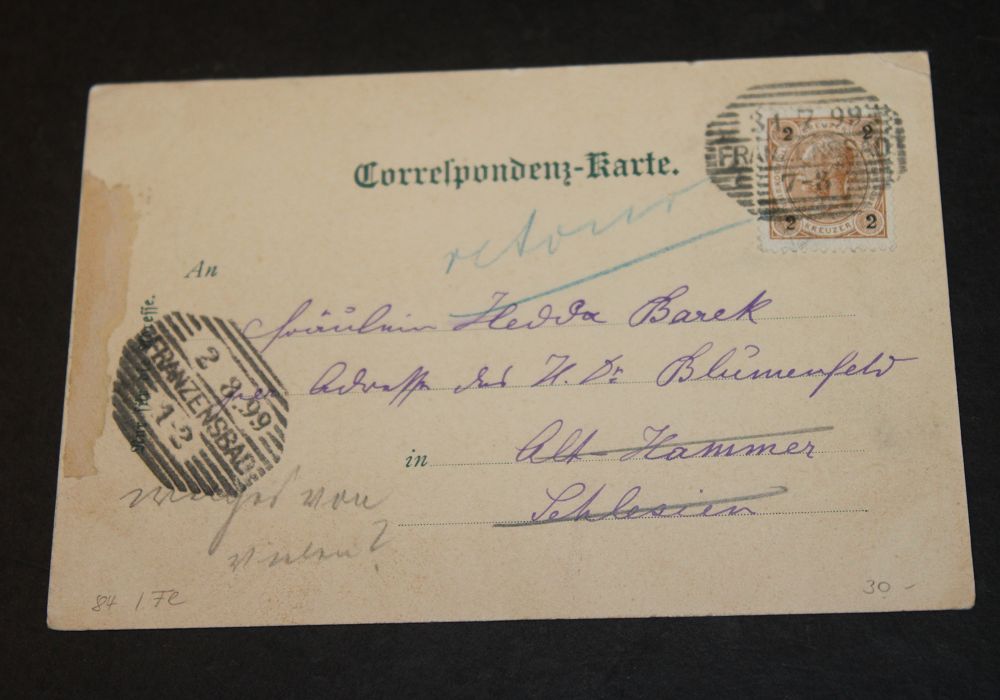 31 7 99
FRANZENSBAD
7-8
2 2
2 KREUZER 2
Correspondenz-Karte.
retour
An
Fräulein Hedda Barek
per Adresse des H. Dr. Blumenfeld
in Alt-Hammer
Schlesien
2 8.99
FRANZENSBAD
1-2
von
84 / Fe
30 -